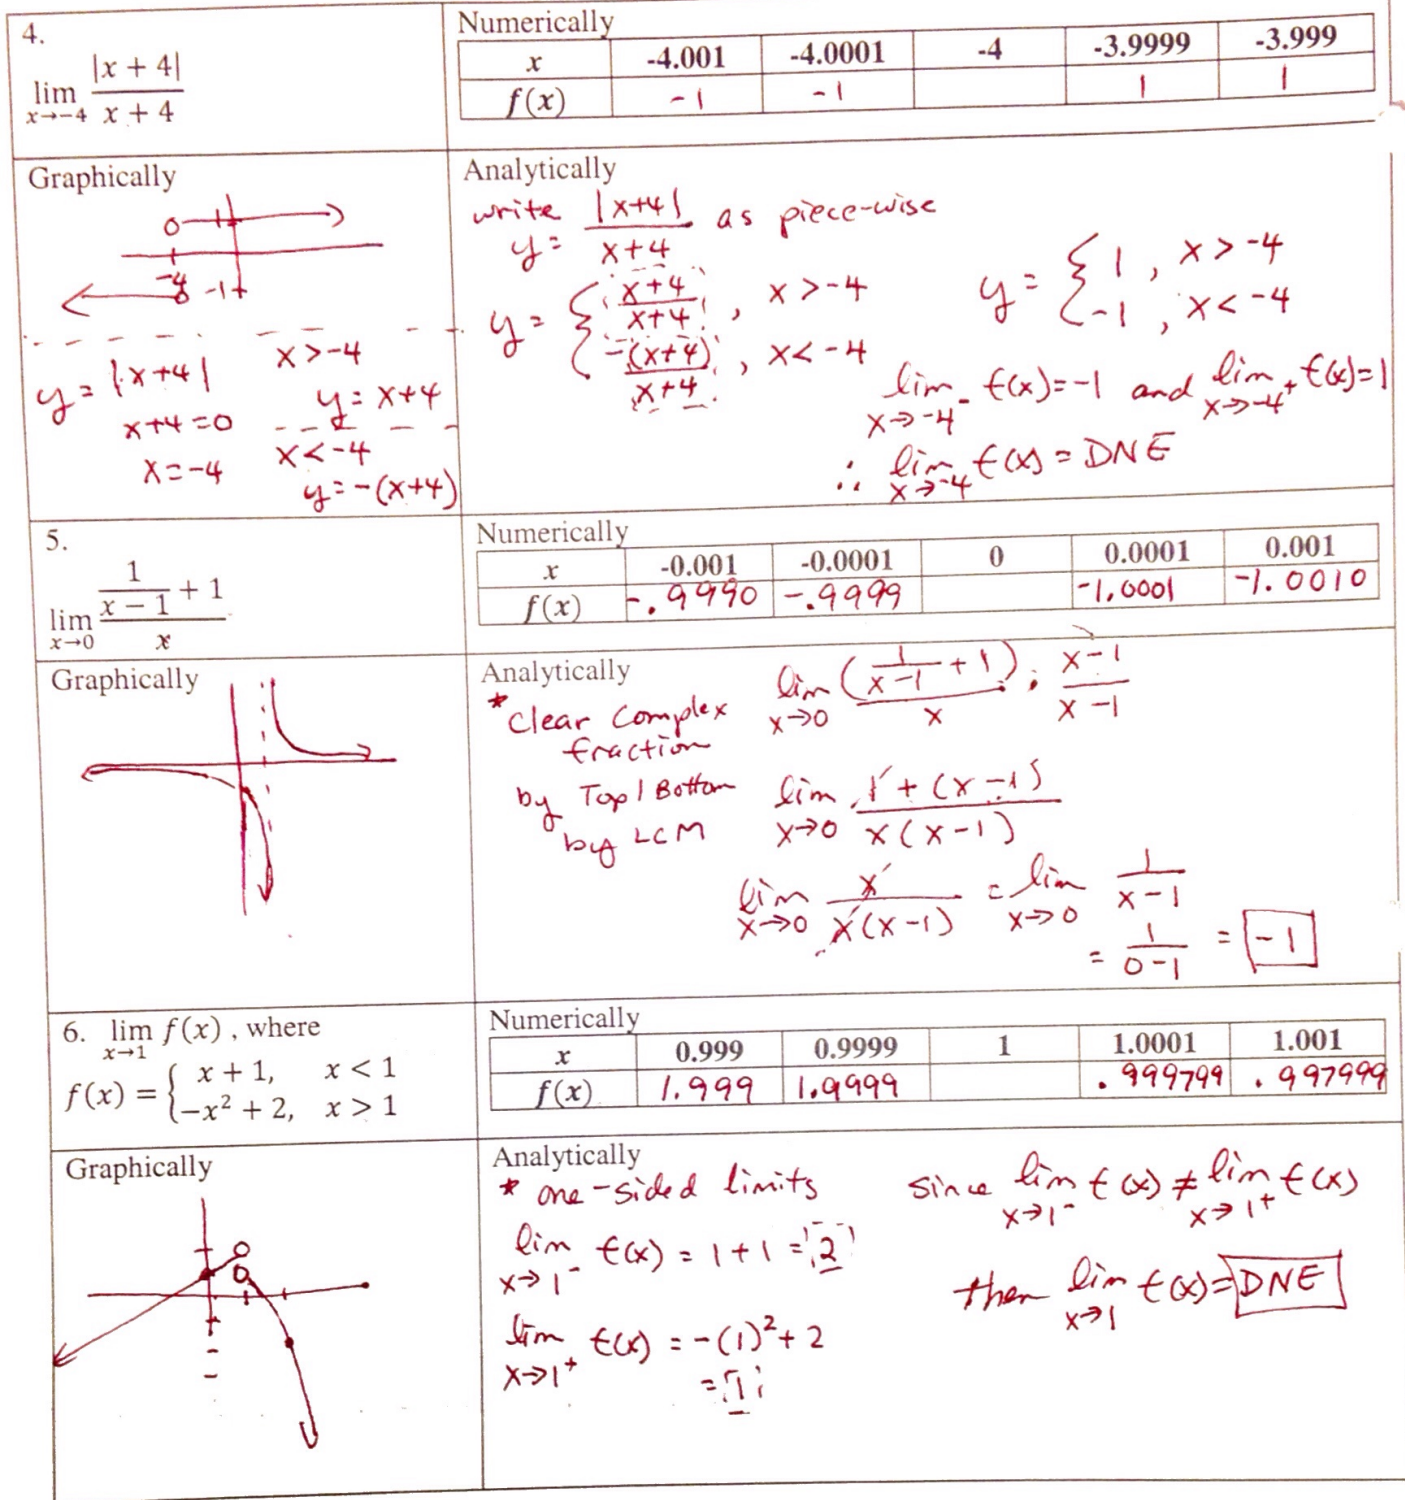 4.
lim x→-4 |x + 4| / x + 4
Numerically
x -4.001 -4.0001 -4 -3.9999 -3.999
f(x) -1 -1 1 1
Graphically
-4
-1
y = |x+4|
x+4=0
x=-4
x>-4
y=x+4
x<-4
y=-(x+4)
Analytically
write y= |x+4| / x+4 as piece-wise
y= { x+4 / x+4, x>-4
-(x+4) / x+4, x<-4
y= { 1, x>-4
-1, x<-4
lim x→-4⁻ f(x)=-1 and lim x→-4⁺ f(x)=1
∴ lim x→-4 f(x)=DNE
5.
lim x→0 (1 / x - 1 + 1) / x
Numerically
x -0.001 -0.0001 0 0.0001 0.001
f(x) -.9990 -.9999 -1.0001 -1.0010
Graphically
Analytically
*clear complex
fraction
by Top/Bottom
by LCM
lim x→0 (1 / x-1 + 1) / x · x-1 / x-1
lim x→0 1+(x-1) / x(x-1)
lim x→0 x / x(x-1) = lim x→0 1 / x-1
= 1 / 0-1 = -1
6. lim x→1 f(x), where
f(x) = { x + 1, x < 1
-x² + 2, x > 1
Numerically
x 0.999 0.9999 1 1.0001 1.001
f(x) 1.999 1.9999 .999799 .997999
Graphically
Analytically
* one-sided limits
lim x→1⁻ f(x) = 1+1 = 2
lim x→1⁺ f(x) = -(1)²+2
= 1
since lim x→1⁻ f(x) ≠ lim x→1⁺ f(x)
then lim x→1 f(x)= DNE